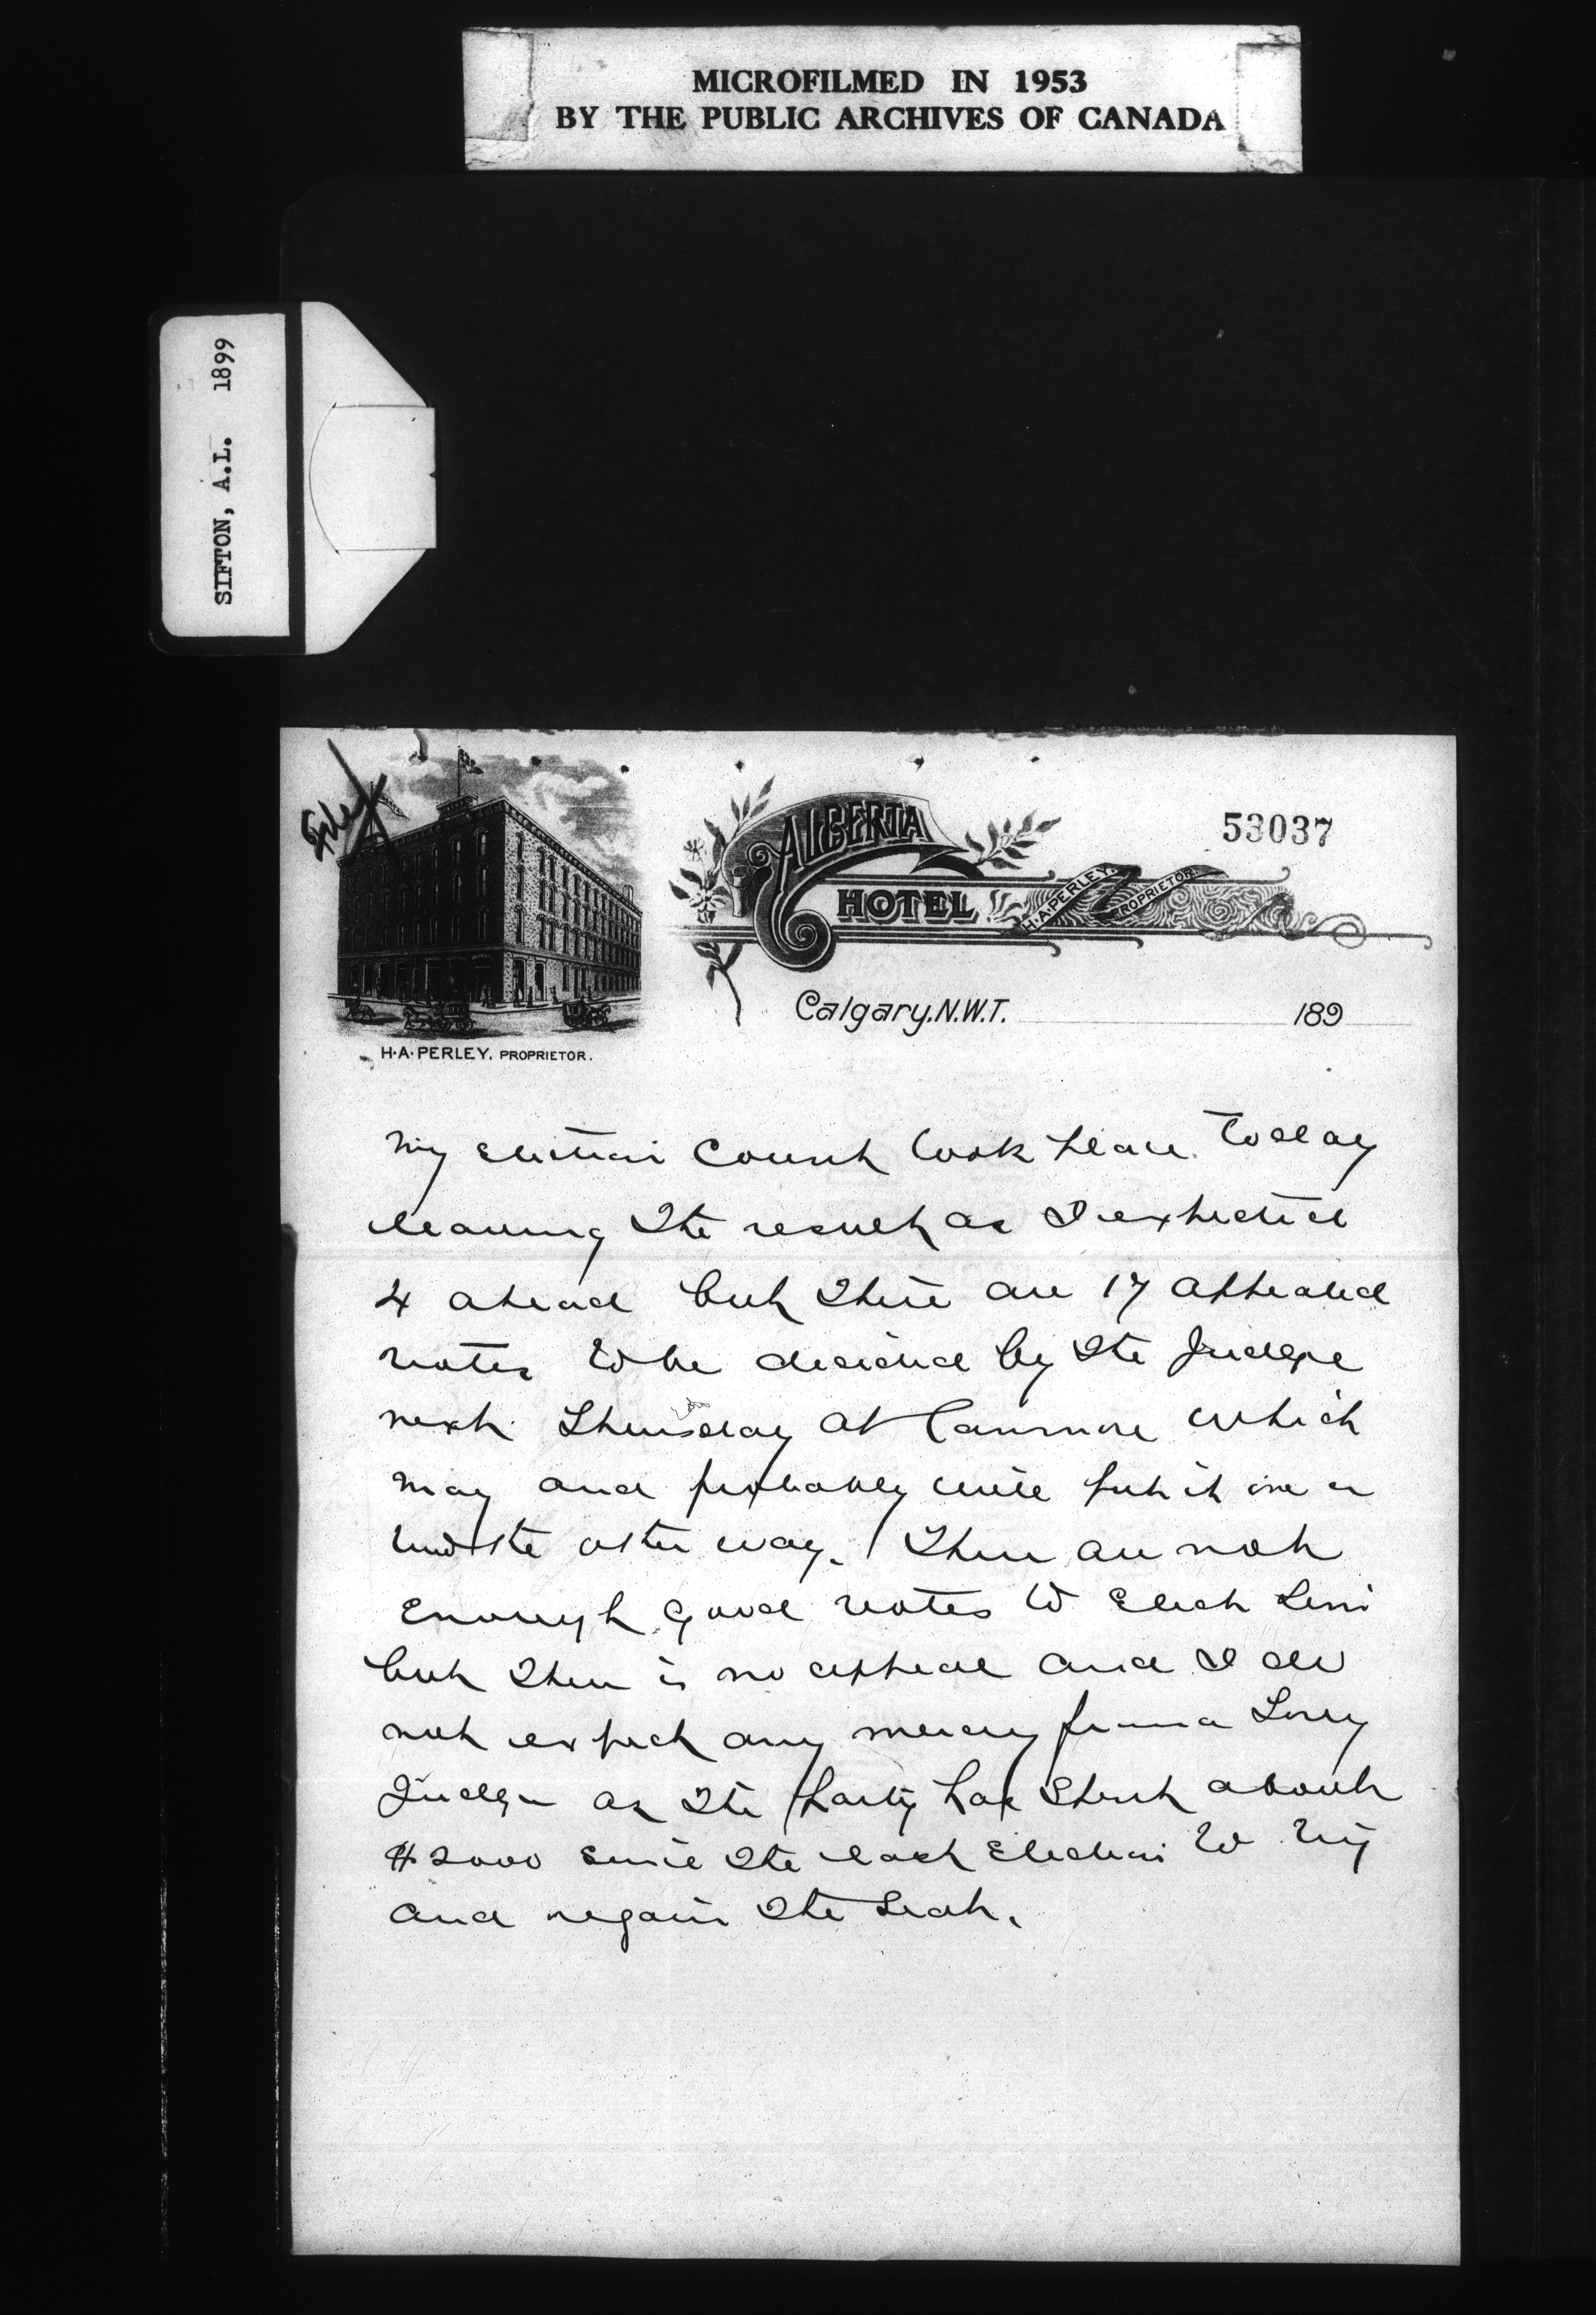 MICROFILMED IN 1953
BY THE PUBLIC ARCHIVES OF CANADA
SIFTON, A.L. 1899
53037
ALBERTA
HOTEL
H.A.PERLEY.
PROPRIETOR.
Calgary, N.W.T. 189
H.A. PERLEY, PROPRIETOR.
My election Count took place today
leaving the result as I expected
4 ahead but there are 17 appealed
votes to be decided by the Judge
next Thursday at Canmore which
may and probably will put it one or
two the other way. There are not
enough good votes to elect him
but there is no appeal and I do
not expect any mercy from a Tory
Judge as the party has spent about
$2000 since the last Election to try
and regain the seat.